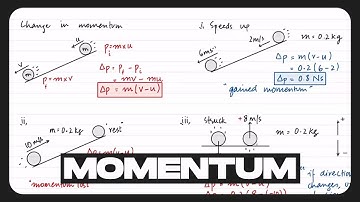 Change in momentum
u
m
v
m
p = m×u
i
p = m×v
f
Δp = Pf - Pi
= mv - mu
Δp = m(v-u)
j, Speeds up
m = 0.2kg
2m/s
6ms⁻¹
Δp = m(v-u)
= 0.2(6-2)
Δp = 0.8 Ns
"gained momentum"
jj,
m = 0.2kg
"rest"
10 m/s
"momentum lost
jjj,
struck
+8m/s
m = 0.2kg
if direction
changes,
MOMENTUM